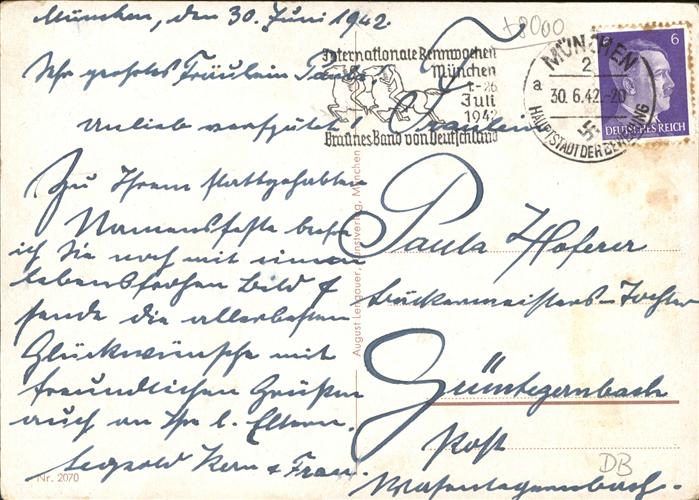 München, den 30. Juni 1942.
+8000
Sehr geehrtes Fräulein Paula!
Unlieb verspätet!
Zu Ihrem stattgehabten
Namensfeste
ich Sie noch mit einem
lebensfrohen Bild &
sende die allerbesten
Glückwünsche mit
freundlichen Grüßen
auch an Ihre l. Eltern.
Leopold Kern & Frau.
Nr. 2070
Internationale Rennwochen
München
1.-26
Juli
1942
Braunes Band von Deutschland
MÜNCHEN
2
a
30.6.42.-20
HAUPTSTADT DER BEWEGUNG
6
DEUTSCHES REICH
August Lengauer, Kunstverlag, München
Fräulein
Paula Hoferer
Bäckermeisters-Tochter
Grüntegernbach
Post
Wasentegernbach.
DB